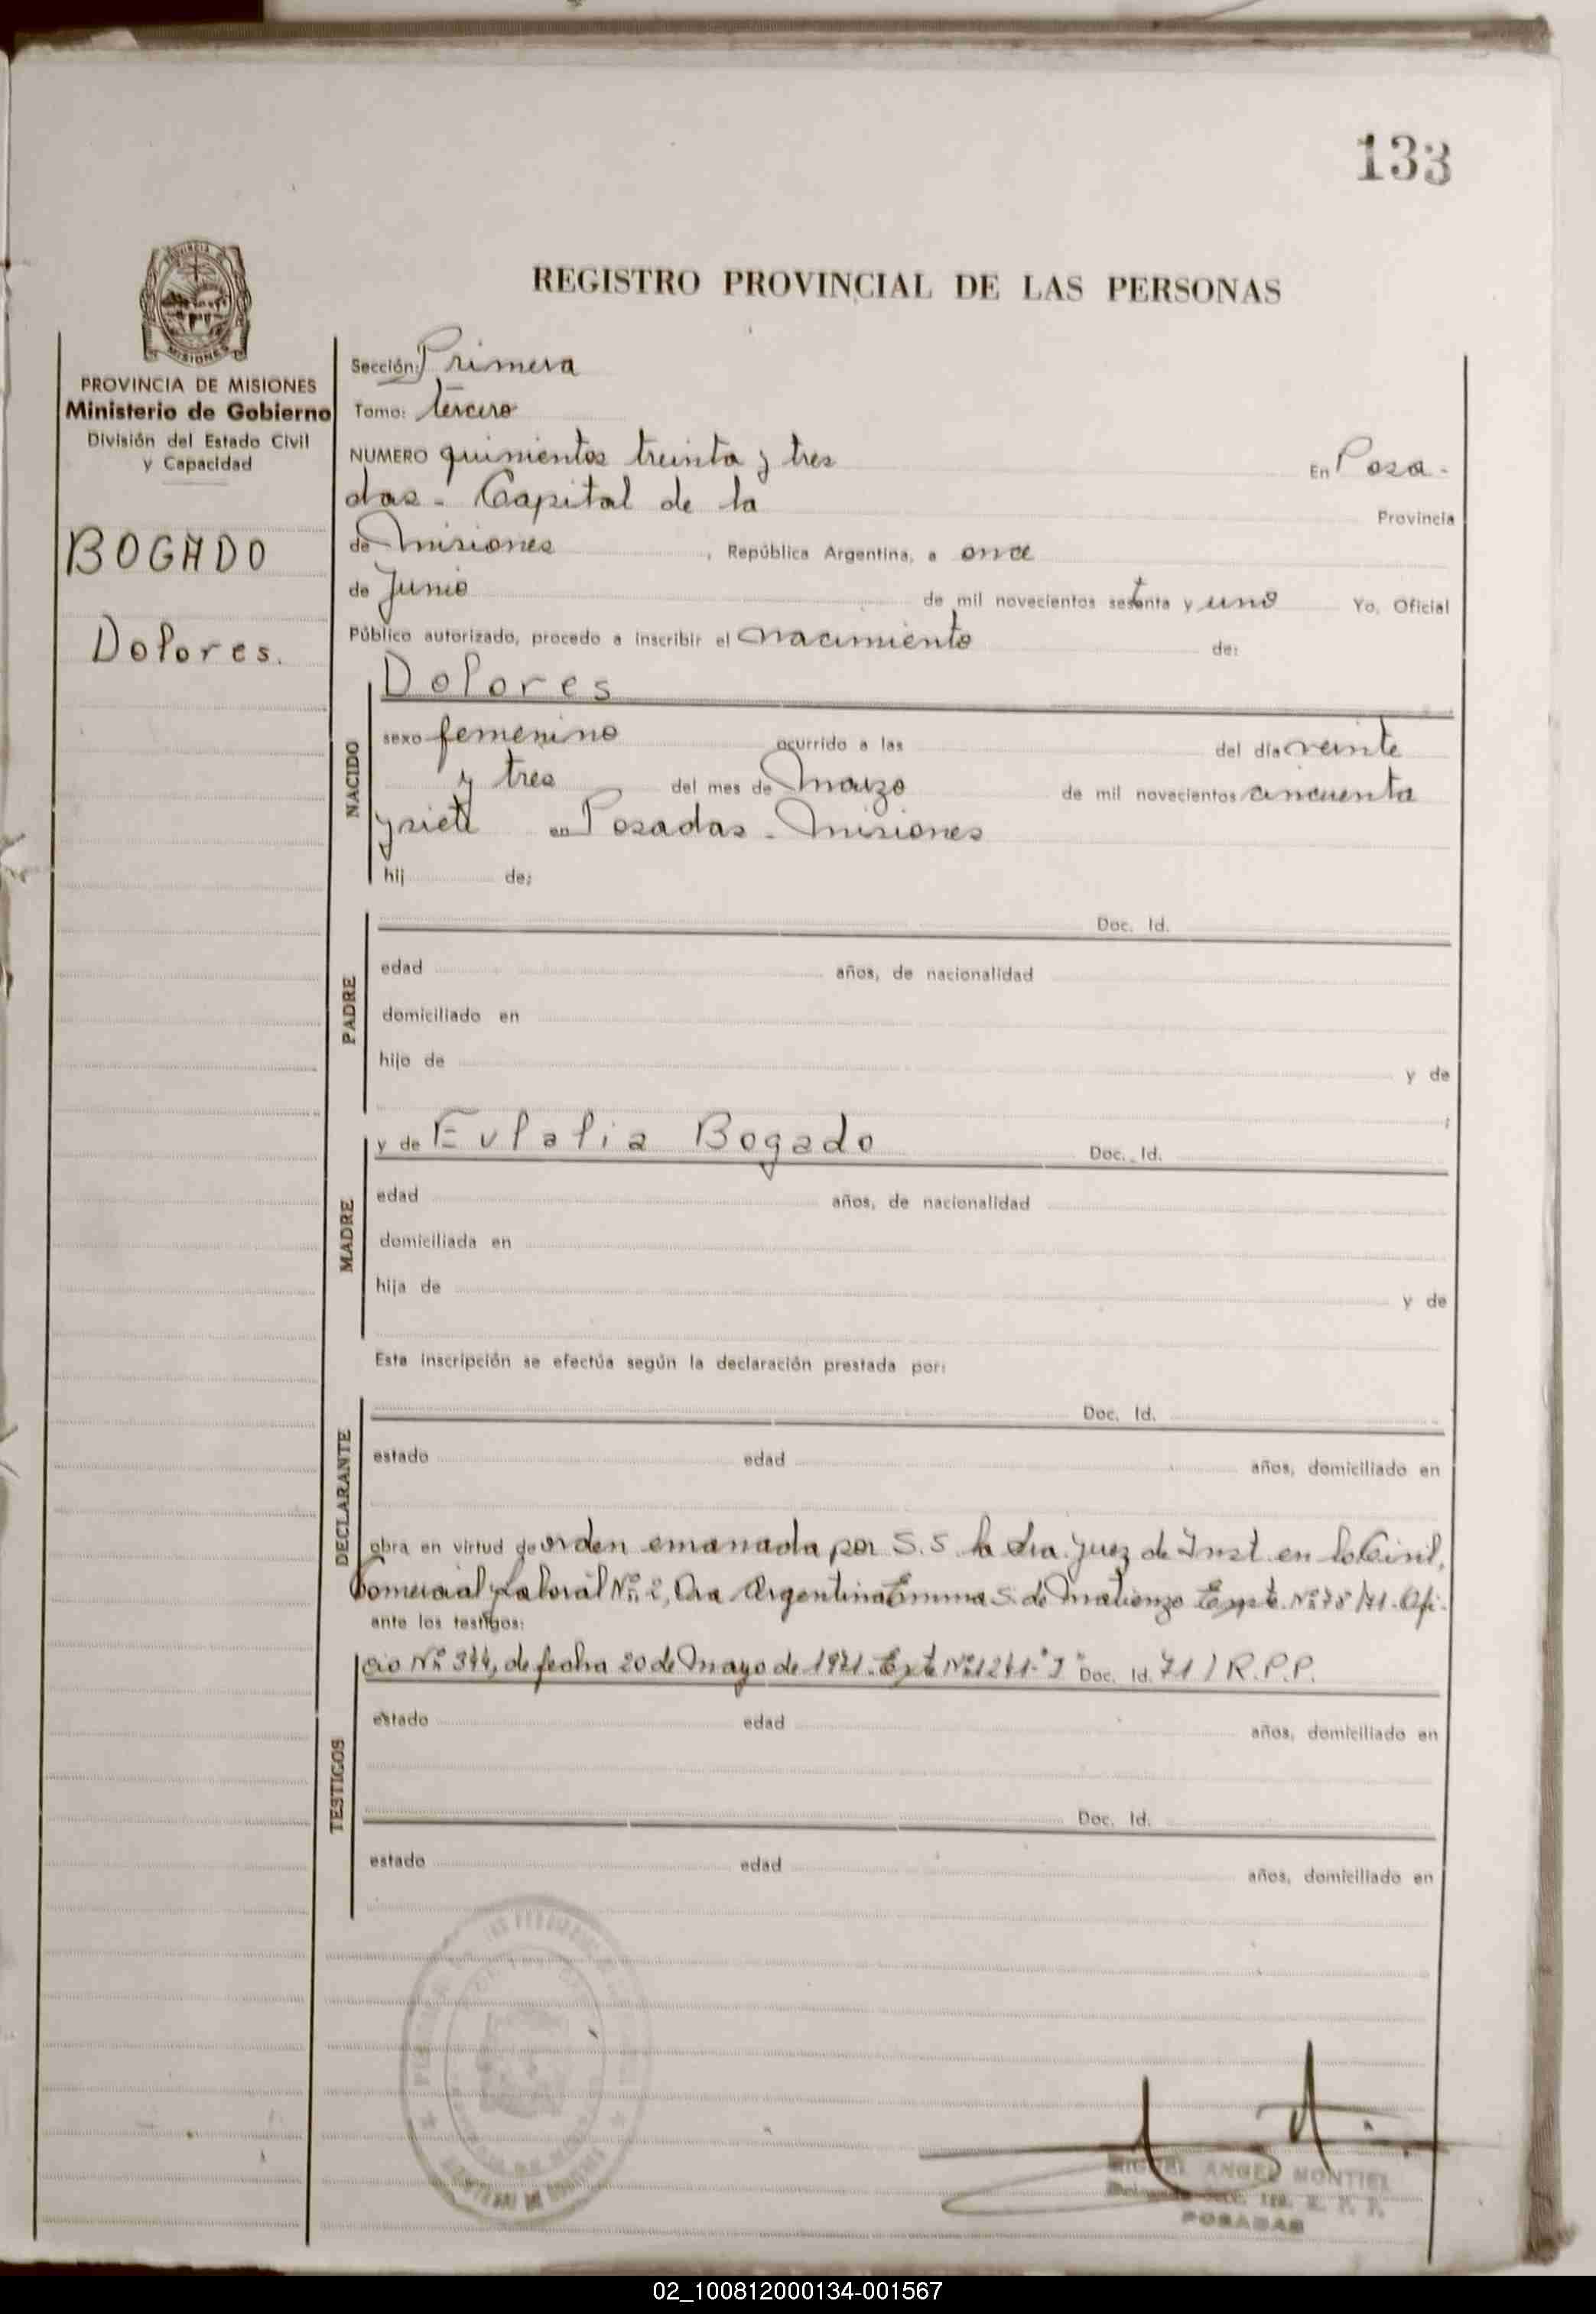 133
PROVINCIA DE MISIONES
Ministerio de Gobierno
División del Estado Civil
y Capacidad
BOGADO
Dolores.
REGISTRO PROVINCIAL DE LAS PERSONAS
Sección: Primera
Tomo: tercero
NUMERO quinientos treinta y tres En Posa-
das - Capital de la Provincia
de Misiones, República Argentina, a once
de Junio de mil novecientos setenta y uno Yo, Oficial
Público autorizado, procedo a inscribir el nacimiento de:
NACIDO
Dolores
sexo femenino ocurrido a las del día veinte
y tres del mes de Marzo de mil novecientos cincuenta
y siete en Posadas - Misiones
hij de;
PADRE
Doc. Id.
edad años, de nacionalidad
domiciliado en
hijo de y de
;
MADRE
y de Eulalia Bogado Doc. Id.
edad años, de nacionalidad
domiciliada en
hija de y de
Esta inscripción se efectúa según la declaración prestada por:
DECLARANTE
Doc. Id.
estado edad años, domiciliado en
obra en virtud de orden emanada por S.S. la Sra. Juez de Inst. en lo Civil,
Comercial y Laboral Nº 2, Dra Argentina Emma S. de Matienzo Expte. Nº 78/71 - Ofi-
ante los testigos:
TESTIGOS
cio Nº de fecha 20 de Mayo de 1971. Expte Nº Doc. Id. 71 / R.P.P.
estado edad años, domiciliado en
Doc. Id.
estado edad años, domiciliado en
MIGUEL ANGEL MONTIEL
POSADAS
02_100812000134-001567